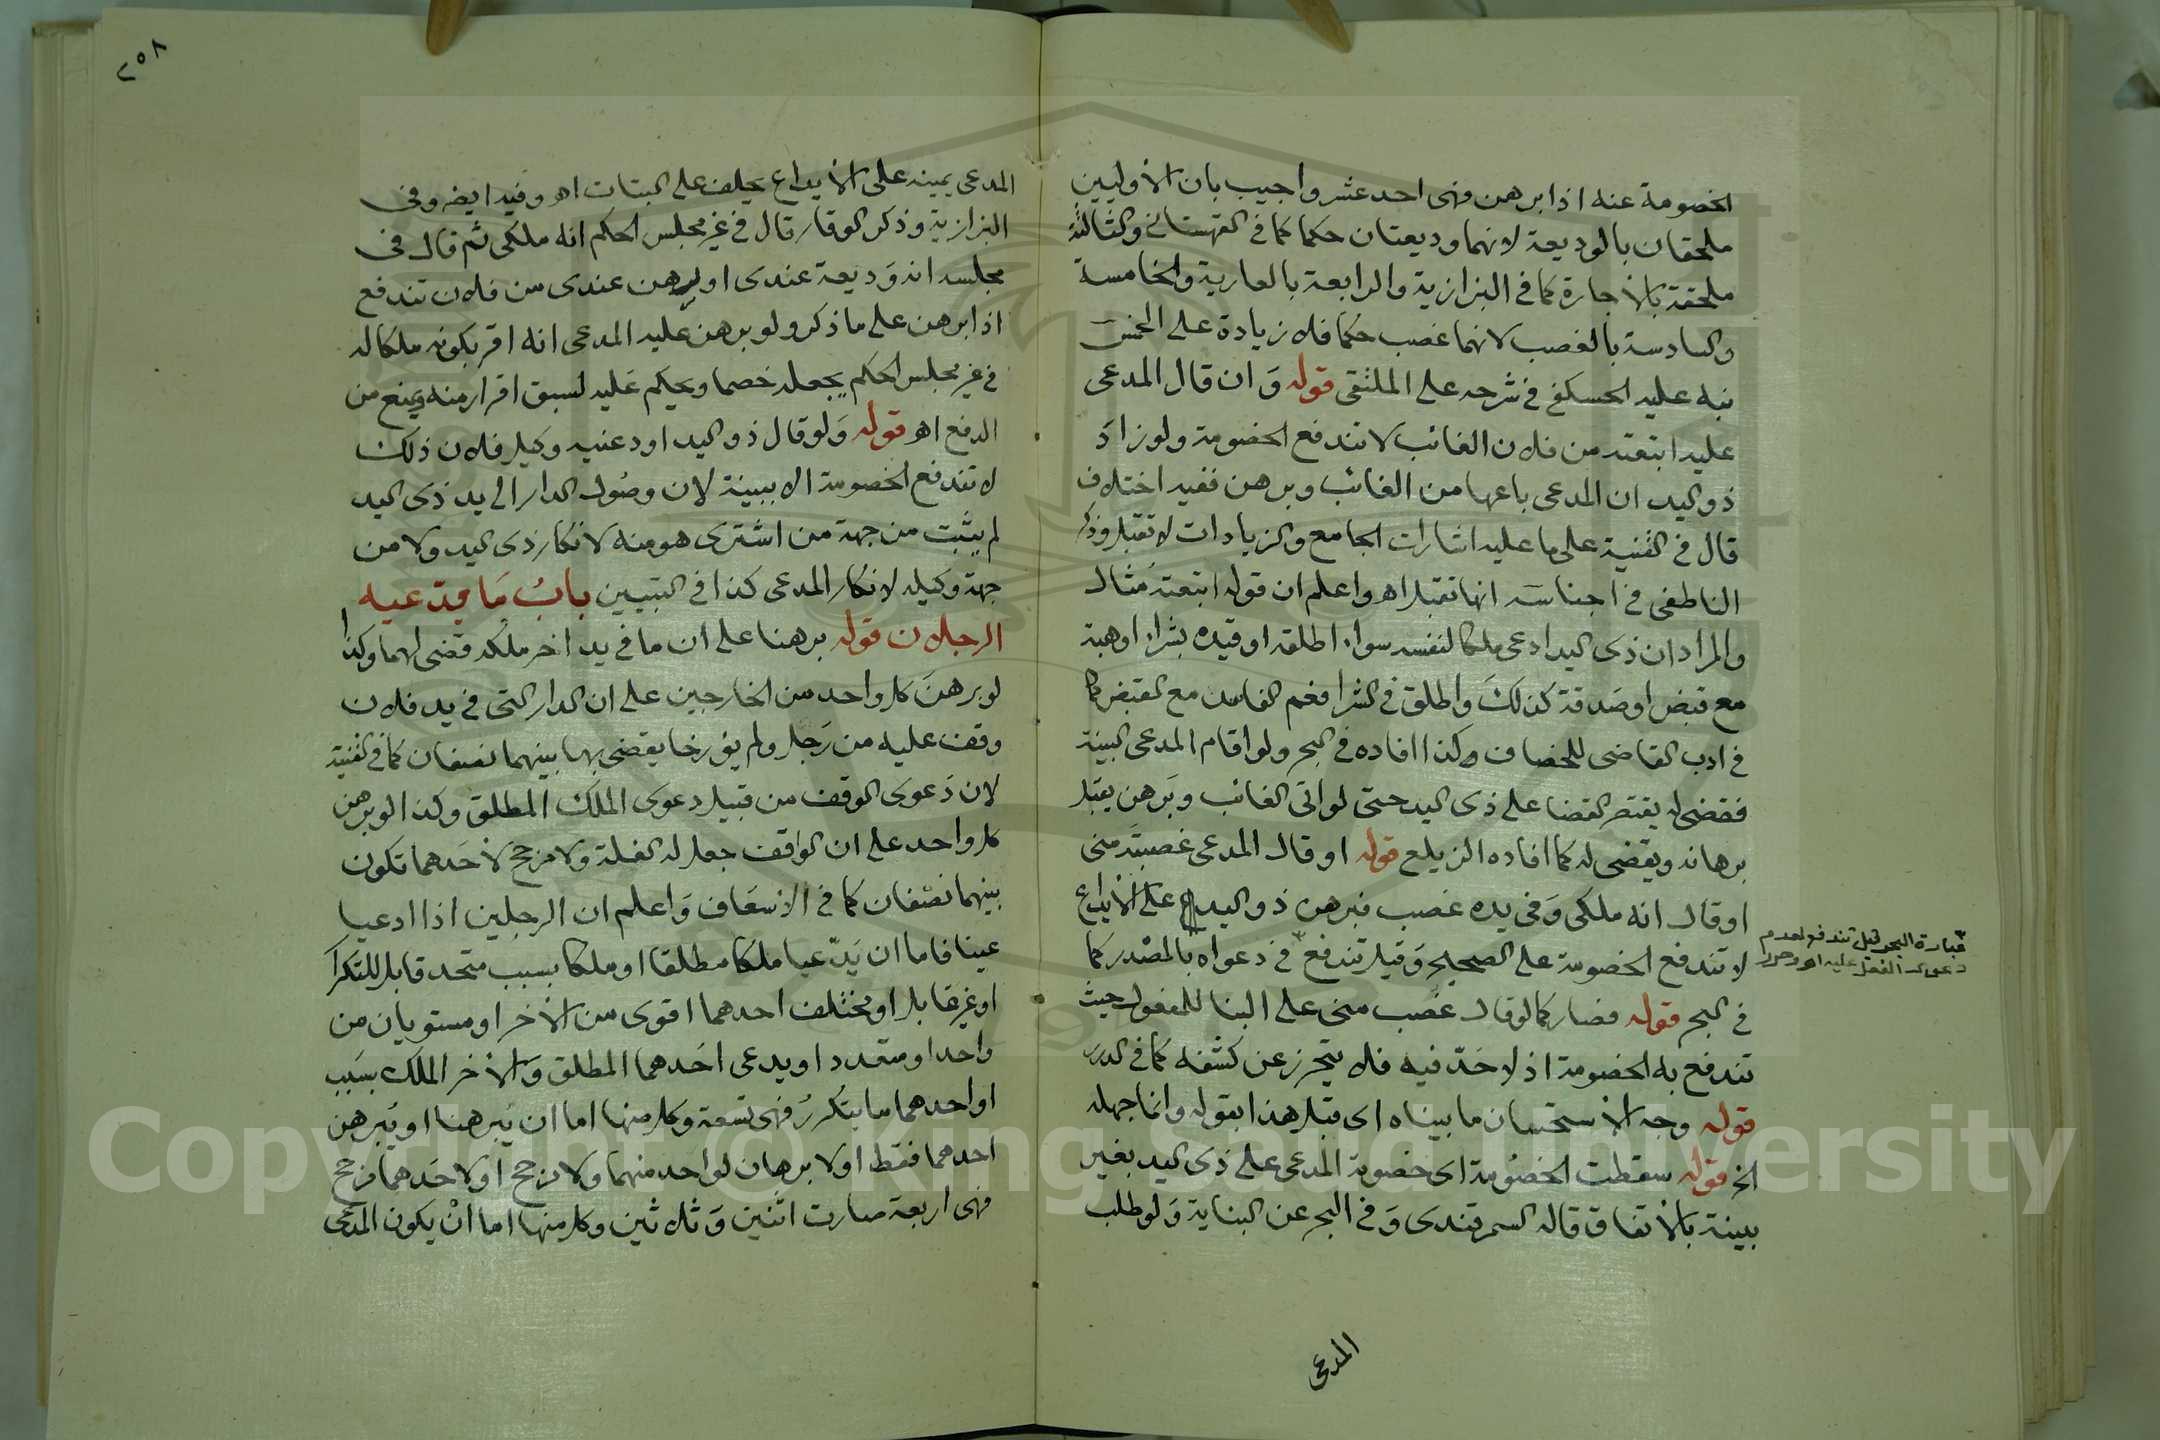 الخصومة عنه اذا برهن فهى احد عشر واجيب بان الأوليين
ملحقان بالوديعة لانهما وديعتان حكما كما فى القهستانى والثالثة
ملحقة بالأجارة كما فى البزازية والرابعة بالعارية والخامسة
والسادسة بالغصب لانهما غصب حكما فلا زيادة على الخمس
نبه عليه الحسكفى فى شرحه على الملتقى قوله وان قال المدعى
عليه ابتعته من فلان الغائب لا تندفع الخصومة ولو زاد
ذو اليد ان المدعى باعها من الغائب وبرهن ففيه اختلاف
قال فى القنية على ما عليه اشارات الجامع والزيادات لا تقبل وذكر
الناطفى فى اجناسه انها تقبل اهـ واعلم ان قوله ابتعته مثال
والمراد ان ذى اليد ادعى ملكا لنفسه سواء اطلقه او قيده بشراء او هبة
مع قبض او صدقة كذلك واطلق فى الشرا فعم الفاسد مع القبض كما
فى ادب القاضى للخصاف وكذا افاده فى البحر ولو اقام المدعى البينة
فقضى له يقتصر القضا على ذى اليد حتى لو اتى الغائب وبرهن يقبل
برهانه ويقضى له كما افاده الزيلعى قوله او قال المدعى غصبته منى
او قال انه ملكى وفى يده غصب فبرهن ذو اليد على الأيداع
لا تندفع الخصومة على الصحيح وقيل تندفع فى دعواه بالمصدر كما
فى البحر قوله فصار كما لو قال غصب منى على البنا للمفعول حيث
تندفع به الخصومة اذ لا حد فيه فلا يتحرز عن كشفه كما فى الدرر
قوله وجه الأستحسان ما بيناه اى قبل هذا بقوله وانما جهله
الخ قوله سقطت الخصومة اى خصومة المدعى على ذى اليد بغير
بينة بالأتفاق قاله السمرقندى وفى البحر عن البناية ولو طلب
المدعى
عبارة البحر قيل تندفع لعدم
دعوى الفعل عليه اهـ
٢٥٨
المدعى يمينه على الأيداع يحلف على البتات اهـ وفيه ايضه وفى
البزازية وذكر الوقار قال فى غير مجلس الحكم انه ملكى ثم قال فى
مجلسه انه وديعة عندى او رهن عندى من فلان تندفع
اذا برهن على ما ذكر ولو برهن عليه المدعى انه اقر بكونه ملكا له
فى غير مجلس الحكم يجعله خصما ويحكم عليه لسبق اقرار منه يمنع من
الدفع اهـ قوله ولو قال ذو اليد اودعنيه وكيل فلان ذلك
لا تندفع الخصومة الا ببينة لان وصول الدار الى يد ذى اليد
لم يثبت من جهة من اشترى هو منه لانكار ذى اليد ولا من
جهة وكيله لانكار المدعى كذا فى التبيين باب ما يدعيه
الرجلان قوله برهنا على ان ما فى يد اخر ملكه قضى لهما وكذا
لو برهن كل واحد من الخارجين على ان الدار التى فى يد فلان
وقف عليه من رجل ولم يؤرخا يقضى بها بينهما نصفان كما فى القنية
لان دعوى الوقف من قبيل دعوى الملك المطلق وكذا لو برهن
كل واحد على ان الواقف جعل له الغلة ولا مرجح لأحدهما تكون
بينهما نصفان كما فى الأسعاف واعلم ان الرجلين اذا ادعيا
عينا فاما ان يدعيا ملكا مطلقا او ملكا بسبب متحد قابل للتكرار
او غير قابل او مختلف احدهما اقوى من الأخر او مستويان من
واحد او متعدد او يدعى احدهما المطلق والأخر الملك بسبب
او احدهما ما يتكرر فهى تسعة وكل منها اما ان يبرهنا او يبرهن
احدهما فقط او لا برهان لواحد منهما ولا مرجح او لاحدهما مرجح
فهى اربعة صارت اثنين وثلاثين وكل منها اما ان يكون المدعى
Copyright © King Saud University